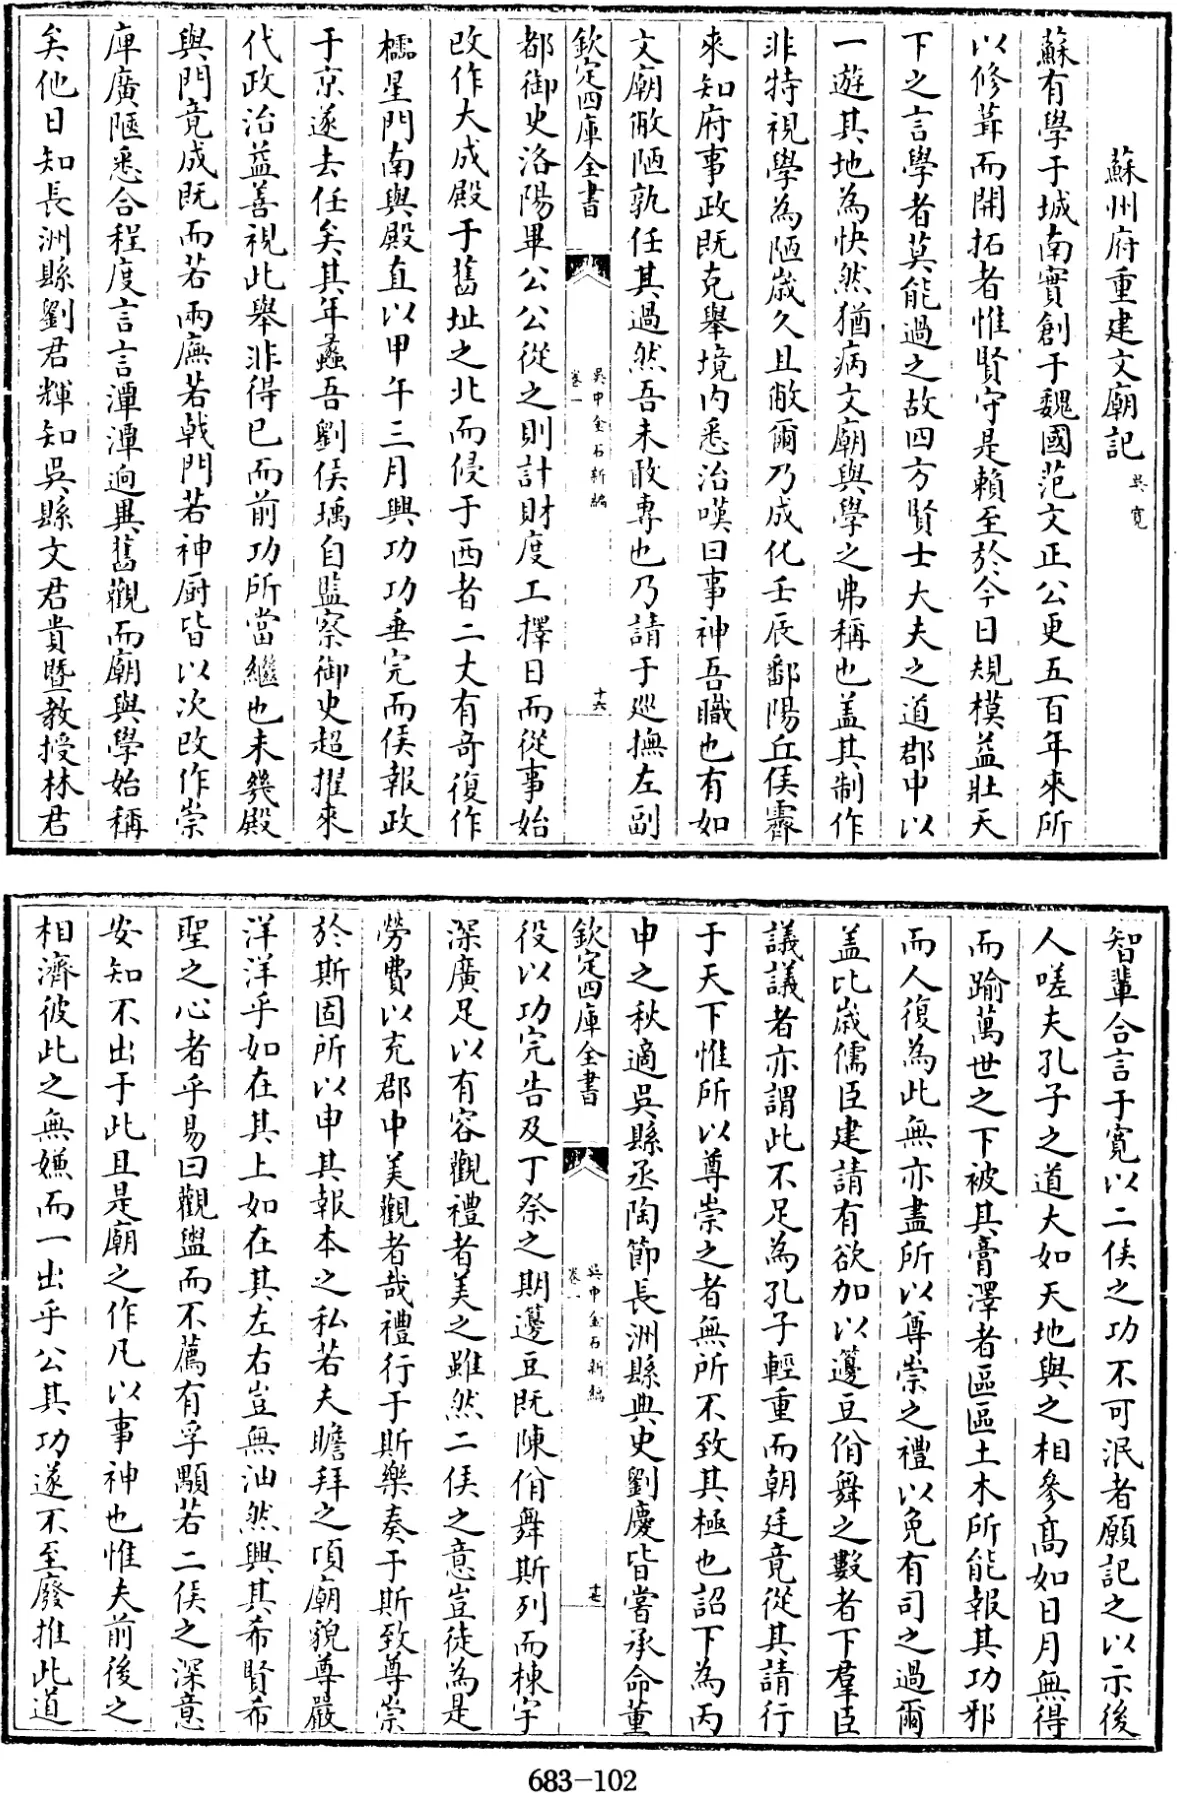 蘇州府重建文廟記 吳寬
蘇有學于城南實創于魏國范文正公更五百年來所
以修葺而開拓者惟賢守是賴至於今日規模益壯天
下之言學者莫能過之故四方賢士大夫之道郡中以
一遊其地為快然猶病文廟與學之弗稱也盖其制作
非特視學為陋歲久且敝爾乃成化壬辰鄱陽丘侯霽
來知府事政既克舉境内悉治嘆曰事神吾職也有如
文廟敝陋孰任其過然吾未敢專也乃請于廵撫左副
欽定四庫全書 吳中金石新編 卷一 十六
都御史洛陽畢公公從之則計財度工擇日而從事始
改作大成殿于舊址之北而侵于西者二丈有奇復作
櫺星門南與殿直以甲午三月興功功垂完而侯報政
于京遂去任矣其年蠡吾劉侯瑀自監察御史超擢來
代政治益善視此舉非得已而前功所當繼也未幾殿
與門竟成既而若兩廡若戟門若神厨皆以次改作崇
庳廣陿悉合程度言言潭潭逈異舊觀而廟與學始稱
矣他日知長洲縣劉君輝知吳縣文君貴暨教授林君
智輩合言于寛以二侯之功不可泯者願記之以示後
人嗟夫孔子之道大如天地與之相參髙如日月無得
而踰萬世之下被其膏澤者區區土木所能報其功邪
而人復為此無亦盡所以尊崇之禮以免有司之過爾
盖比歲儒臣建請有欲加以籩豆佾舞之數者下羣臣
議議者亦謂此不足為孔子輕重而朝廷竟從其請行
于天下惟所以尊崇之者無所不致其極也詔下為丙
申之秋適吳縣丞陶節長洲縣典史劉慶皆嘗承命董
欽定四庫全書 吳中金石新編 卷一 十七
役以功完告及丁祭之期籩豆既陳佾舞斯列而棟宇
深廣足以有容觀禮者美之雖然二侯之意豈徒為是
勞費以充郡中美觀者哉禮行于斯樂奏于斯致尊崇
於斯固所以申其報本之私若夫瞻拜之頃廟貌尊嚴
洋洋乎如在其上如在其左右豈無油然興其希賢希
聖之心者乎易曰觀盥而不薦有孚顒若二侯之深意
安知不出于此且是廟之作凡以事神也惟夫前後之
相濟彼此之無嫌而一出乎公其功遂不至廢推此道
683-102